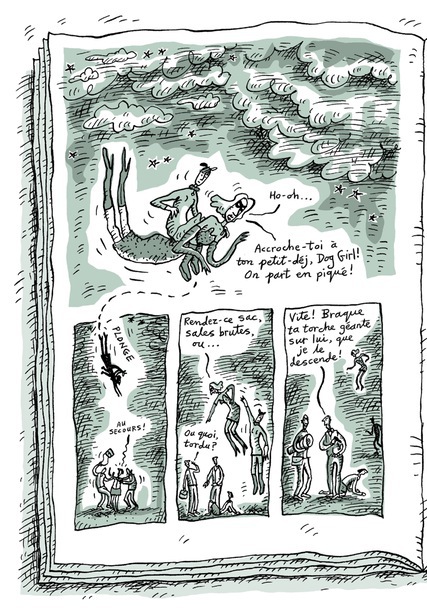 Ho-oh...
Accroche-toi à
ton petit-déj, Dog Girl!
On part en piqué!
PLONGE
AU
SECOURS!
Rendez-ce sac,
sales brutes,
ou...
Ou quoi,
tordu?
Vite! Braque
ta torche géante
sur lui, que
je le
descende!